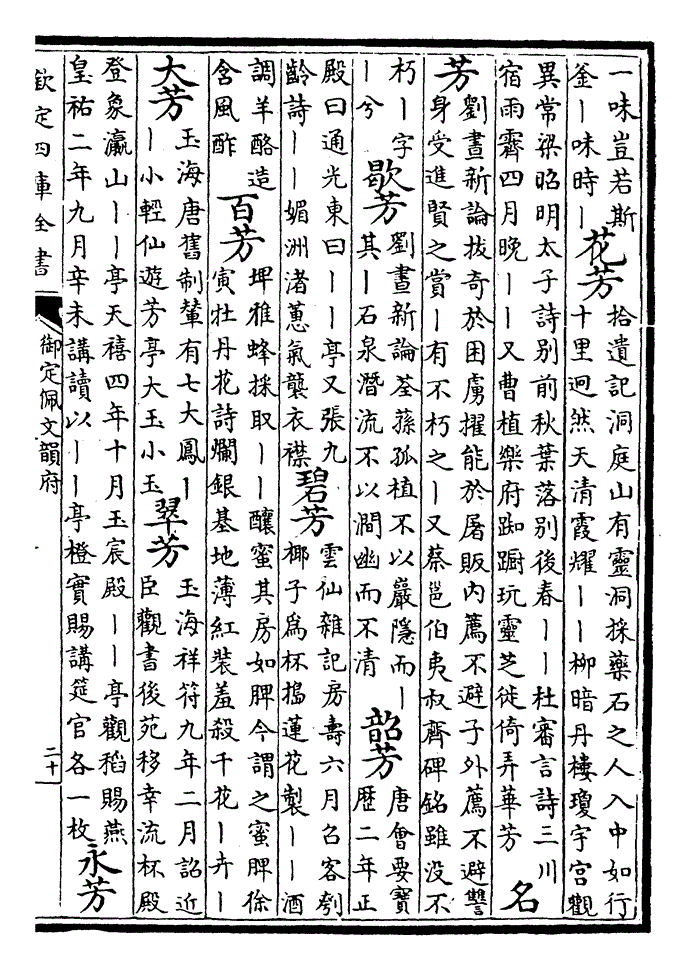 一味豈若斯
釜丨味時丨
花芳
拾遺記洞庭山有靈洞採藥石之人入中如行
十里迥然天清霞耀丨丨柳暗丹樓瓊宇宫觀
異常梁昭明太子詩别前秋葉落别後春丨丨杜審言詩三川
宿雨霽四月晚丨丨又曹植樂府踟蹰玩靈芝徙倚弄華芳
名
芳
劉晝新論拔奇於困虜擢能於屠販内薦不避子外薦不避讐
身受進賢之賞丨有不朽之丨又蔡邕伯夷叔齊碑銘雖没不
朽丨字
丨兮
歇芳
劉晝新論荃蓀孤植不以巖隱而丨
其丨石泉潛流不以澗幽而不清
韶芳
唐會要寶
歴二年正
殿曰通光東曰丨丨亭又張九
齡詩丨丨媚洲渚蕙氣襲衣襟
碧芳
雲仙雜記房壽六月召客刳
椰子為杯搗蓮花製丨丨酒
調羊酪造
含風酢
百芳
埤雅蜂採取丨丨釀蜜其房如脾今謂之蜜脾徐
寅牡丹花詩爛銀基地薄紅裝羞殺千花丨卉丨
大芳
玉海唐舊制輦有七大鳳丨
丨小輕仙遊芳亭大玉小玉
翠芳
玉海祥符九年二月詔近
臣觀書後苑移幸流杯殿
登象瀛山丨丨亭天禧四年十月玉宸殿丨丨亭觀稻賜燕
皇祐二年九月辛未講讀以丨丨亭橙實賜講筵官各一枚
永芳
欽定四庫全書
御定佩文韻府
二十